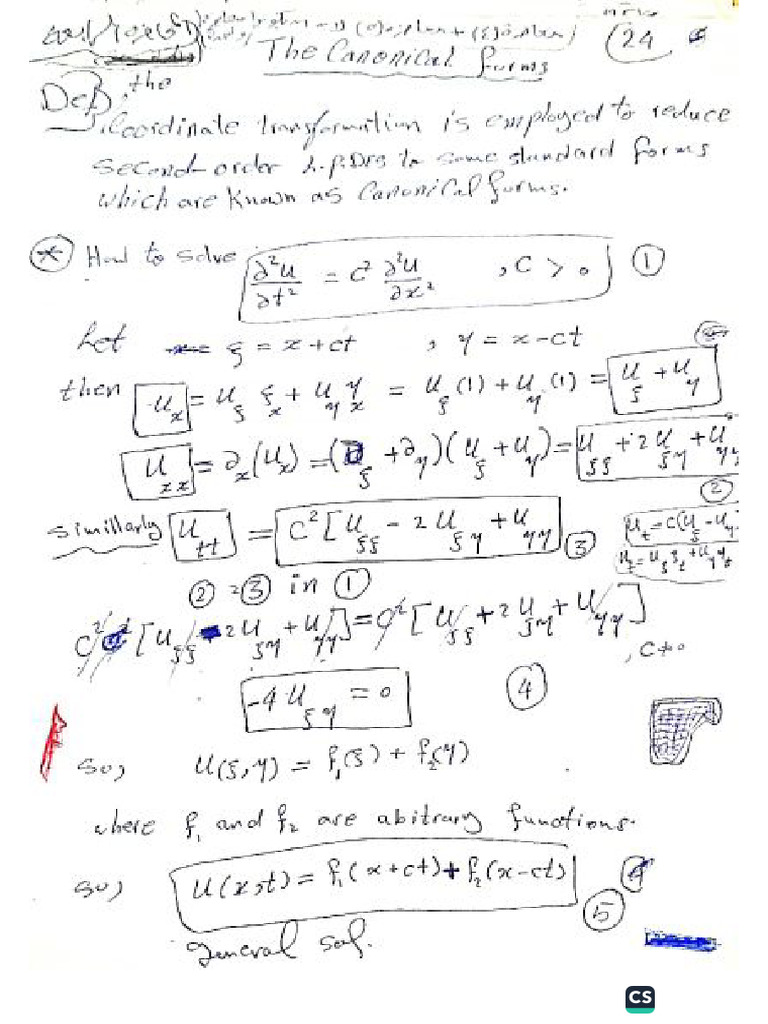 The Canonical forms
24
Def, the
Coordinate transformation is employed to reduce
second-order L.P.DEs to some standard forms
which are known as Canonical forms.
* How to solve ∂²u/∂t² = c² ∂²u/∂x² , c > 0 (1)
Let ξ = x + ct , y = x - ct
then u_x = u_ξ ξ_x + u_y y_x = u_ξ (1) + u_y (1) = u_ξ + u_y
u_xx = ∂_x (u_x) = (∂_ξ + ∂_y)(u_ξ + u_y) = u_ξξ + 2u_ξy + u_yy
(2)
simillarly u_tt = c² [u_ξξ - 2u_ξy + u_yy (3)
u_t = c(u_ξ - u_y
u_t = u_ξ ξ_t + u_y y_t
(2) = (3) in (1)
c² [u_ξξ - 2u_ξy + u_yy] = c² [u_ξξ + 2u_ξy + u_yy]
, c ≠ 0
-4u_ξy = 0 (4)
so, u(ξ,y) = f₁(ξ) + f₂(y)
where f₁ and f₂ are abitrary functions.
so, u(x,t) = f₁(x+ct) + f₂(x-ct)
(5)
general sol.
CS